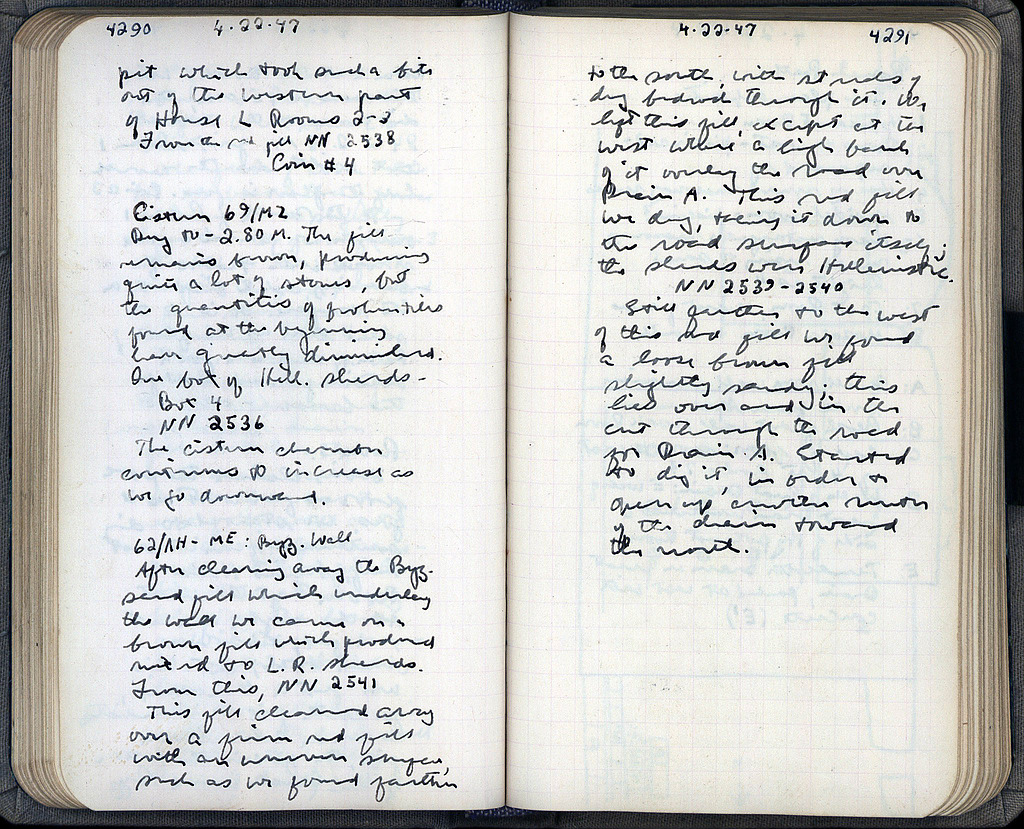 4290
4.22.47
pit which took such a bite
out of the western part
of House L Rooms 2-3
From the red fill NN 2538
Coin #4
Cistern 69/MZ
Dug to -2.80 M. The fill
remains brown, producing
quite a lot of stones, but
the quantities of
found at the beginning
have greatly diminished.
One box of Hell. sherds -
Box 4
NN 2536
The cistern chamber
continues to increase as
we go downward.
62/ΛH - ME: Byz. Wall
After clearing away the Byz.
sand fill which underlay
the wall we came on a
brown fill which produced
mixed to L.R. sherds.
From this, NN 2541
This fill cleared away
over a firm red fill
with an uneven surface,
such as we found farther
4.22.47
4291
to the south, with streaks of
dug bedrock through it. We
left this fill, except at the
west where a high bank
of it overlay the road over
Drain A. This red fill
we dug, tracing it down to
the road surface itself;
the sherds were Hellenistic.
NN 2539-2540
Still farther to the west
of this red fill we found
a loose brown fill
slightly sandy; this
lies over and in the
cut through the road
for Drain A. Started
to dig it, in order to
open up another much
of the drain toward
the north.